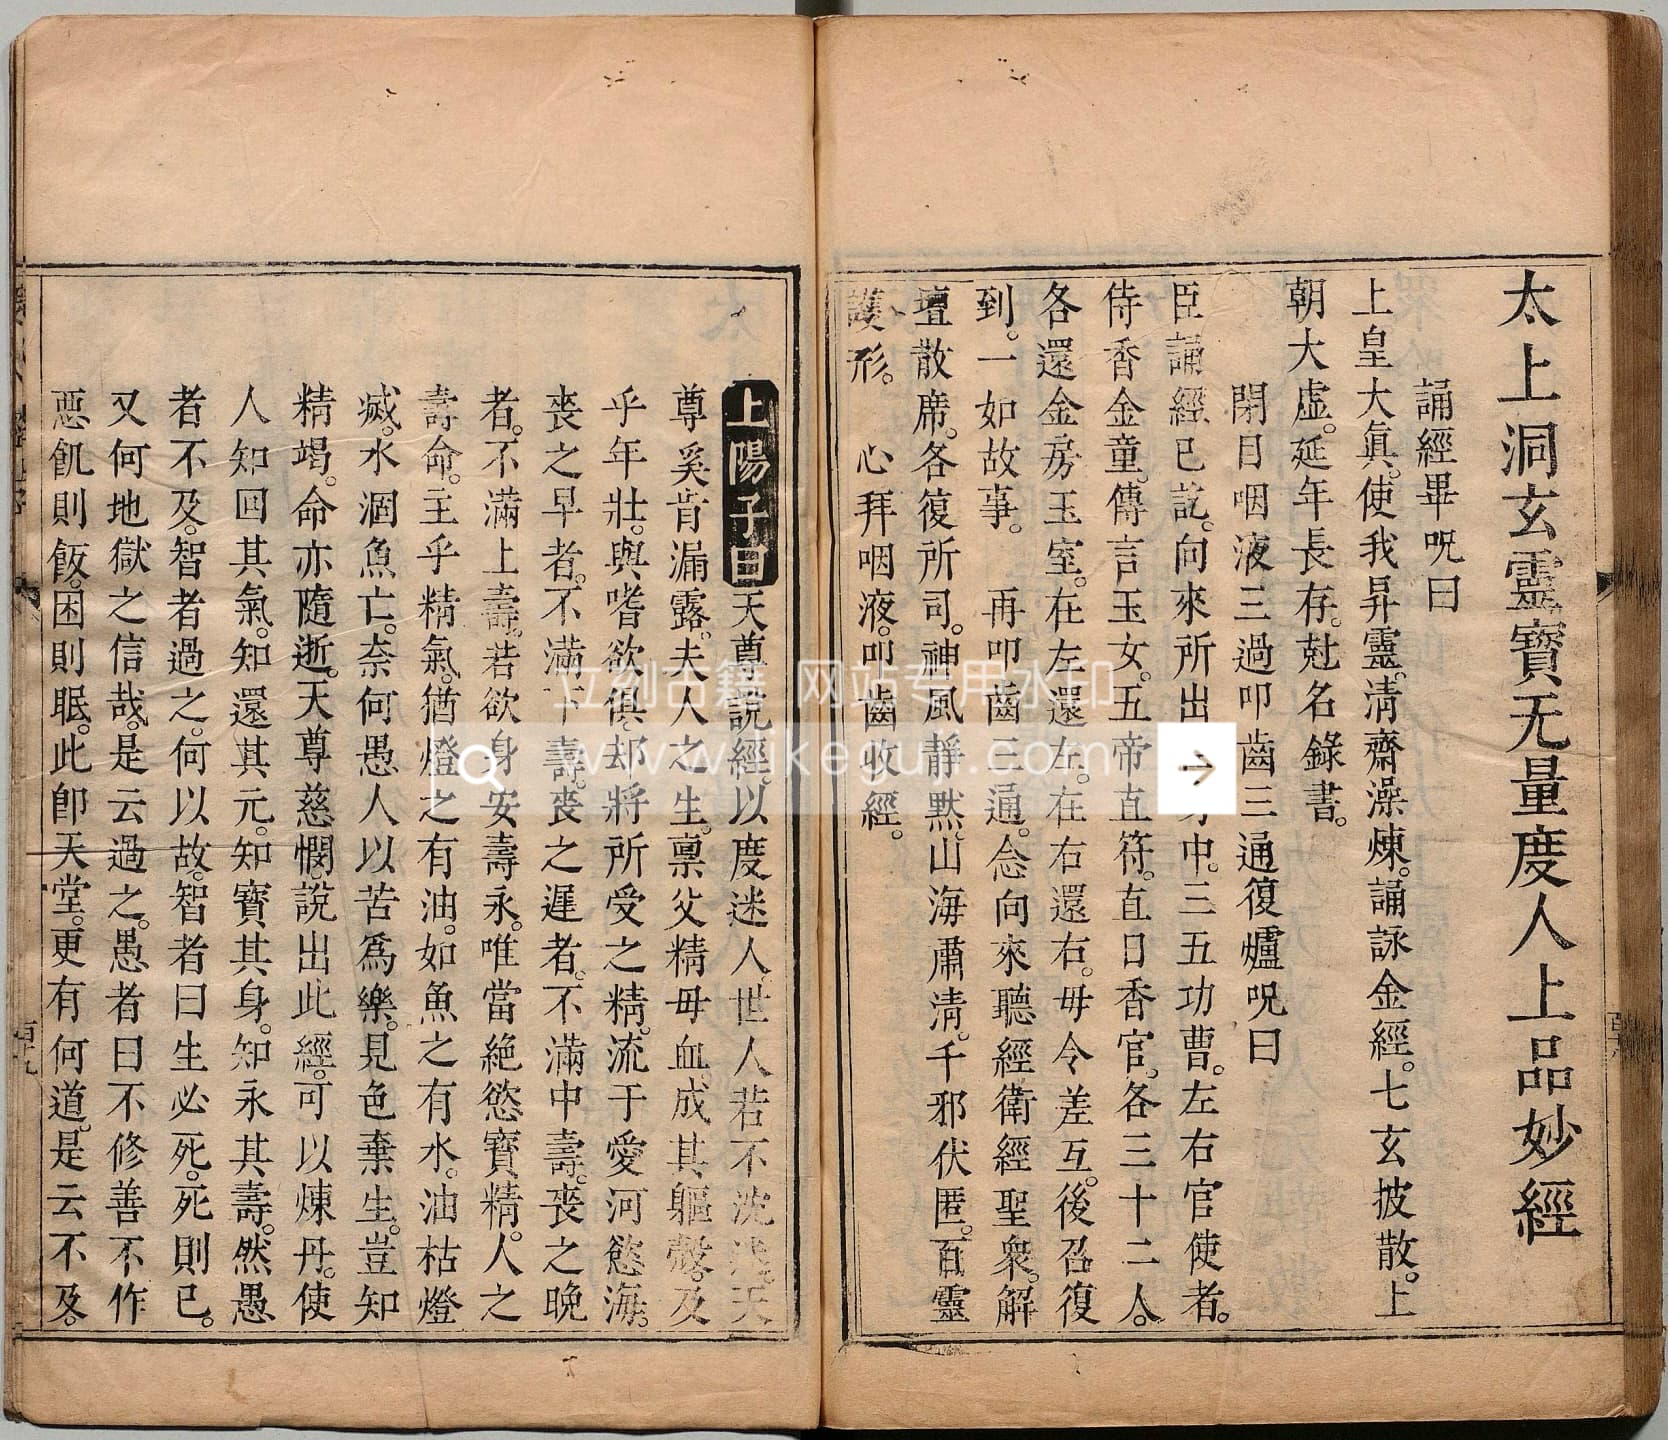 太上洞玄靈寶无量度人上品妙經
誦經畢呪曰
上皇大眞。使我昇靈。淸齋澡煉。誦詠金經。七玄披散。上
朝大虛。延年長存。尅名錄書。
閉目咽液三過叩齒三通復爐呪曰
臣誦經已訖。向來所出 身中。三五功曹。左右官使者。
侍香金童。傳言玉女。五帝直符。直日香官。各三十二人。
各還金房玉室。在左還左。在右還右。毋令差互。後召復
到。一如故事。 再叩齒三通。念向來聽經衛經聖衆。解
壇散席。各復所司。神風靜默。山海肅淸。千邪伏匿。百靈
護形。 心拜咽液。叩齒收經。
上陽子曰天尊說經。以度迷人。世人若不沈迷。天
尊奚肯漏露。夫人之生。稟父精毋血。成其軀殼。及
乎年壯。與嗜欲俱。却將所受之精。流于愛河慾海。
喪之早者。不滿下壽。喪之遲者。不滿中壽。喪之晚
者。不滿上壽。若欲身安壽永。唯當絶慾寶精。人之
壽命。主乎精氣。猶燈之有油。如魚之有水。油枯燈
滅。水涸魚亡。奈何愚人以苦爲樂。見色棄生。豈知
精竭。命亦隨逝。天尊慈憫。說出此經。可以煉丹。使
人知回其氣。知還其元。知寶其身。知永其壽。然愚
者不及。智者過之。何以故。智者曰生必死。死則已。
又何地獄之信哉。是云過之。愚者曰不修善不作
惡飢則飯。困則眠。此卽天堂。更有何道。是云不及。
立刻古籍 网站专用水印
www.likeguji.com